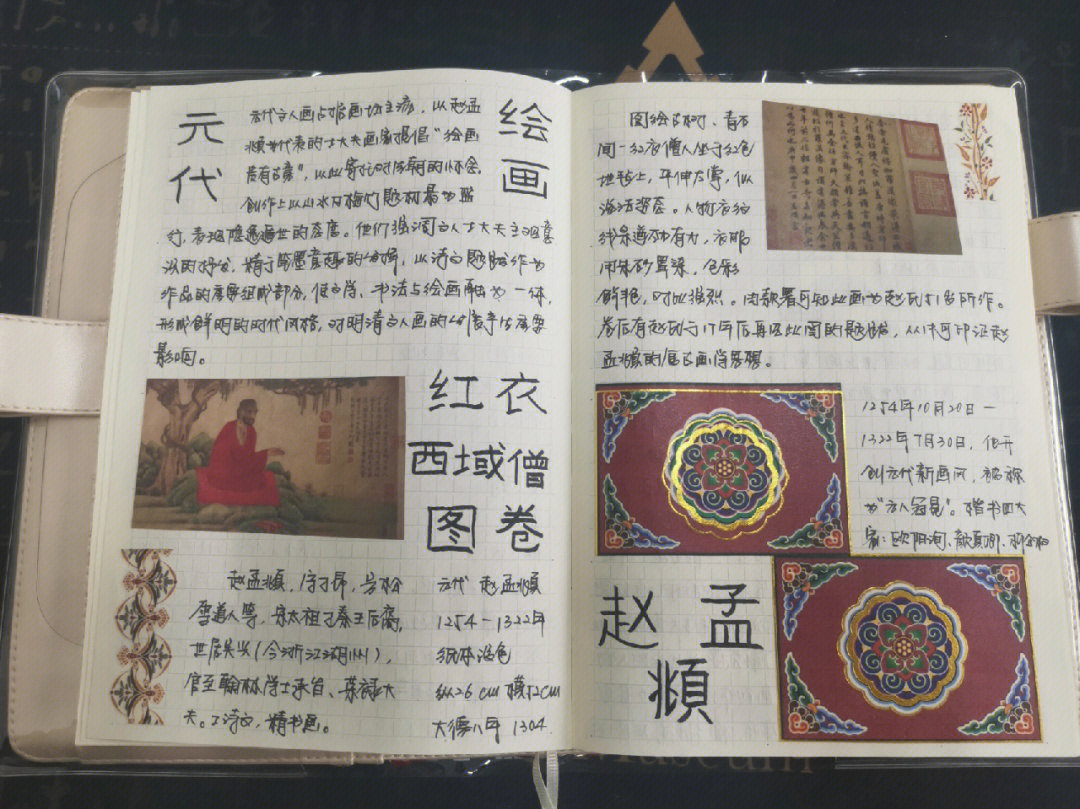 元代
绘画
元代文人画占据画坛主流，以赵孟
頫为代表的士大夫画家提倡“绘画
贵有古意”，以此寄托对故朝的怀念，
创作上以山水及梅竹题材最为盛
行，表现隐逸遁世的态度。他们强调文人士大夫主观意
识的抒发，精于笔墨意趣的
以诗文题跋作为
作品的重要组成部分，使文学、书法与绘画融为一体，
形成鲜明的时代风格，对明清文人画的发展予以重要
影响。
红衣
西域僧
图卷
赵孟頫，字子昂，号松
雪道人等，宋太祖子秦王后裔，
世居吴兴（今浙江湖州），
官至翰林学士承旨、荣禄大
夫。工诗文，精书画。
元代 赵孟頫
1254-1322年
纸本设色
纵26cm 横52cm
大德八年 1304
图绘古树、青石
间一红衣僧人坐于红色
地毡上，平伸左掌，似
说法姿态。人物衣纹
线条遒劲有力，衣服
用朱砂罩染，色彩
鲜艳，对比强烈。由款署可知此画为赵氏51岁所作。
卷后有赵氏于17年后再
此图的题跋，从中可印证赵
孟頫的崇古画学思想。
1254年10月20日-
1322年7月30日，他开
创元代新画风，被称
为“元人冠冕”。楷书四大
家：欧阳询、颜真卿、柳公权
赵孟
頫